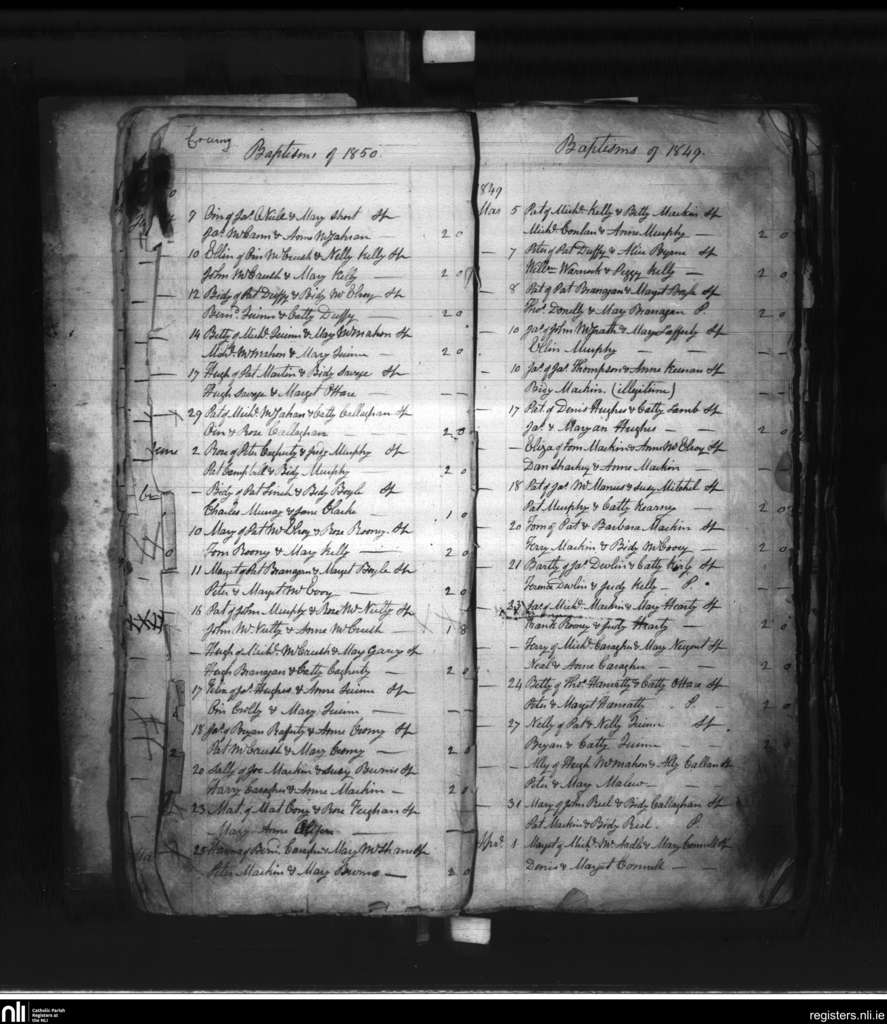 Baptisms of 1850.
7 Oin of Jas. O'Neile & Mary Short Sp
Jas. McCann & Anne 2 0
10 Ellin of Oin McCrush & Nelly Kelly Sp
John McCrush & Mary Kelly 2 0
12 Bidy of Pat Duffy & Bidy McElroy Sp
Bernd. Quinn & Catty Duffy 2 0
14 Betty of Michl. Quinn & May McMahon Sp
Michl. McMahon & Mary Quinn 2 0
17 Hugh of Pat Martin & Bidy Savage Sp
Hugh Savage & Margt O'Hare
29 Pat of Michl. & Catty Callaghan Sp
Oin & Rose Callaghan 2 0
June 2 Rose of Peter & Judy Murphy Sp
Pat Campbell & Bidy Murphy 2 0
— Bidy of Pat Linch & Bidy Boyle Sp
Charles Murray & Jane Clarke 1 0
10 Mary of Pat McElroy & Rose Roony Sp
Tom Roony & Mary Kelly 2 0
11 Margt of Pat Branagan & Margt Boyle Sp
Peter & Margt McCovy 2 0
16 Pat of John Murphy & Rose McNulty Sp
John McNulty & Anne McCrush 1 8
— Hugh of Michl. McCrush & May Garvy Sp
Hugh Branagan & Catty 2 0
17 Felix of Jas. Hughes & Anne Quinn Sp
Oin Crolly & Mary Quinn
18 Jas. of Bryan Rafferty & Anne Cromy Sp
Pat McCrush & Mary Cromy 2 0
20 Sally of Joe Mackin & Susy Burns Sp
Harry Caragher & Anne Mackin 2 0
23 Mat. of Mat Cony & Rose Feighan Sp
Mary Anne
25 of Bern. Caragher & Mary Sp
Peter Mackin & Mary Burns 2 0
Baptisms of 1849.
1849
Mar 5 Pat of Michl. Kelly & Betty Mackin Sp
Michl. Conlan & Anne Murphy 2 0
— 7 Peter of Pat Duffy & Alice Byrne Sp
Willm Warnock & Peggy Kelly 2 0
— 8 Pat of Pat Branagan & Margt Boyle Sp
Thos. Donelly & Mary Branagan P. 2 0
— 10 Jas. of John McGrath & Mary Lafferty Sp
Ellin Murphy
— 10 Jas. of Jas. Thompson & Anne Keenan Sp
Bidy Mackin (illegitime)
— 17 Pat. of Denis Hughes & Catty Lamb Sp
Jas. & Maryan Hughes 2 0
— Eliza of Tom Mackin & Anne McElroy Sp
Dan Sharkey & Anne Mackin
— 18 Pat of Jas. McManus & Susy Mitchel Sp
Pat Murphy & Catty Kearney 2 0
— 20 Tom of Pat & Barbara Mackin Sp
Terry Mackin & Bidy McCovey 2 0
— 21 Bartly of Jas. Devlin & Catty Sp
Devlin & Judy Kelly P.
— 23 Jas. of Michl. Mackin & Mary Hearty Sp
Frank Rooney & Judy Hearty 2 0
— Terry of Michl. Caragher & Mary Nugent Sp
Neal & Anne Caragher 2 0
— 24 Betty of Thos. Hanratty & Catty O'Hare Sp
Peter & Margt Hanratty P. 2 0
— 27 Nelly of Pat & Nelly Quinn Sp
Bryan & Catty Quinn
— Ally of Hugh McMahon & Ally Callan Sp
Peter & Mary
— 31 Mary of John Reel & Bidy Callaghan Sp
Pat Mackin & Bidy Reel P.
Apr. 1 Margt of Michl. & Mary Connell Sp
Denis & Margt Connell
nli
Catholic Parish
Registers at
the NLI
registers.nli.ie